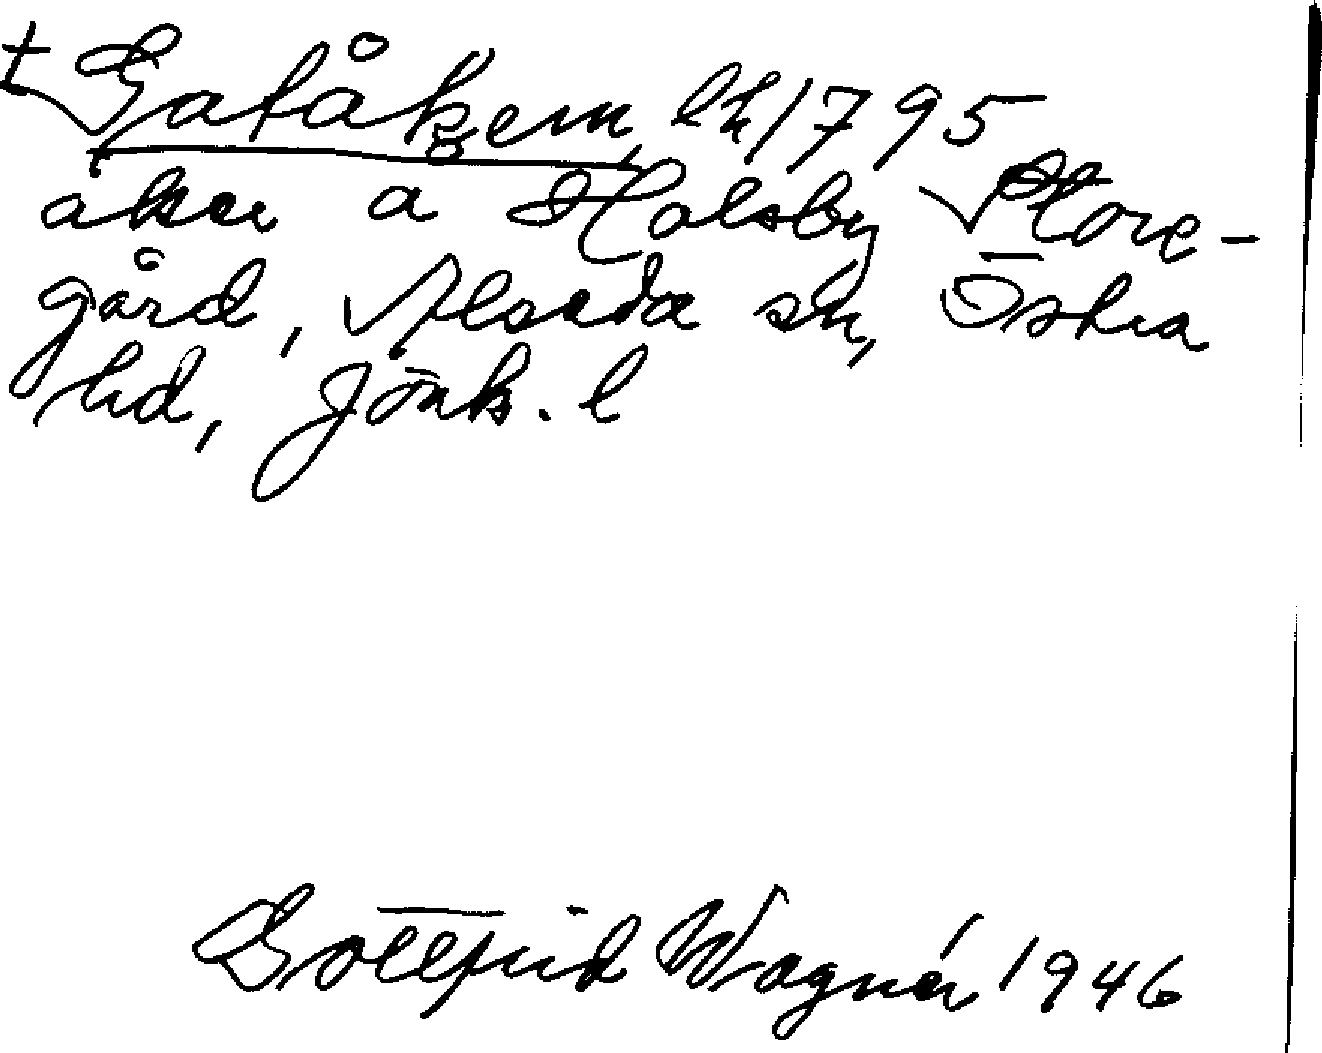 + Gatåkern, lh 1795
åker a Holsby Store-
gård, Alseda sn, Östra
hd, Jönk. l
Gottfrid Wagnér 1946